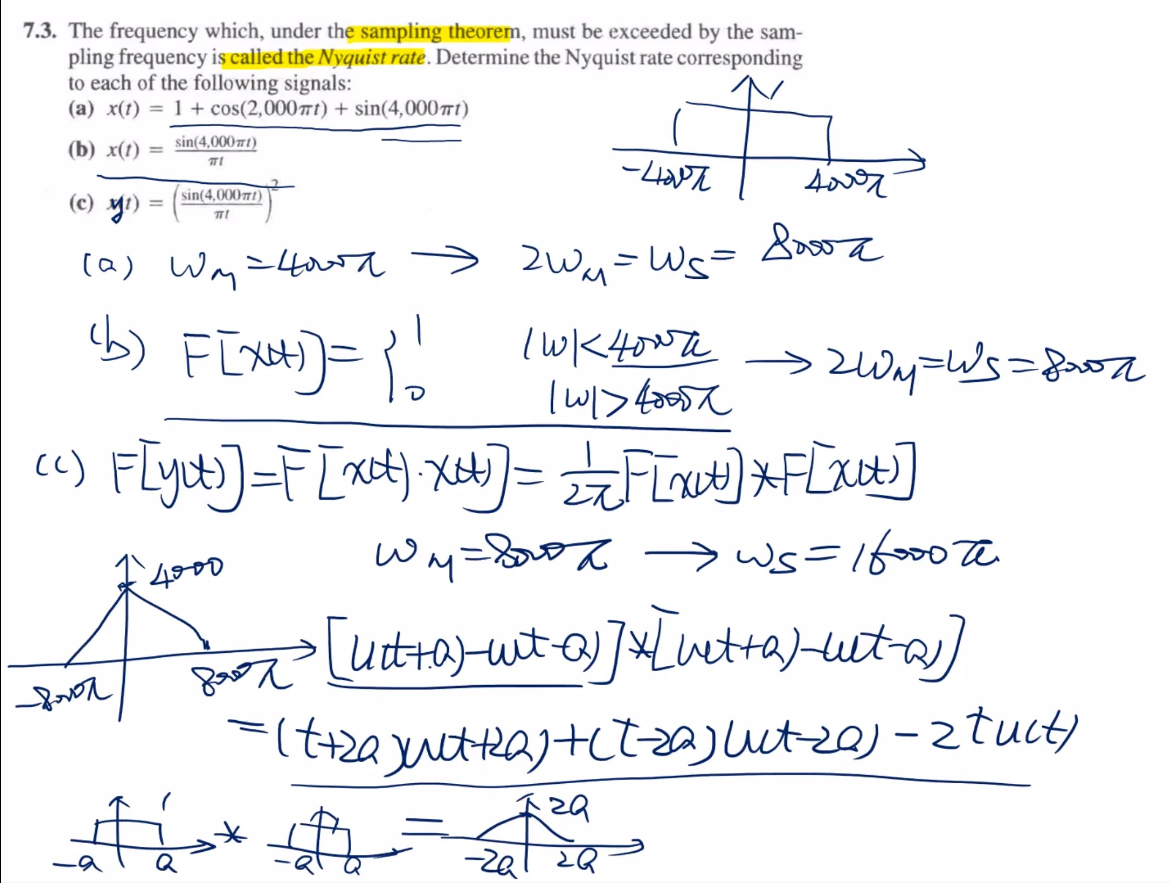 7.3. The frequency which, under the sampling theorem, must be exceeded by the sam-
pling frequency is called the Nyquist rate. Determine the Nyquist rate corresponding
to each of the following signals:
(a) x(t) = 1 + cos(2,000πt) + sin(4,000πt)
(b) x(t) = sin(4,000πt) / πt
(c) y(t) = (sin(4,000πt) / πt)²
-4000π 4000π
(a) ω_M = 4000π → 2ω_M = ω_s = 8000π
(b) F[x(t)] = { 1 |ω| < 4000π → 2ω_M = ω_s = 8000π
0 |ω| > 4000π
(c) F[y(t)] = F[x(t)·x(t)] = 1/2π F[x(t)] * F[x(t)]
ω_M = 8000π → ω_s = 16000π
4000
-8000π 8000π
[u(t+a)-u(t-a)] * [u(t+a)-u(t-a)]
= (t+2a)u(t+2a) + (t-2a)u(t-2a) - 2tu(t)
1 2a
-a a * -a a = -2a 2a